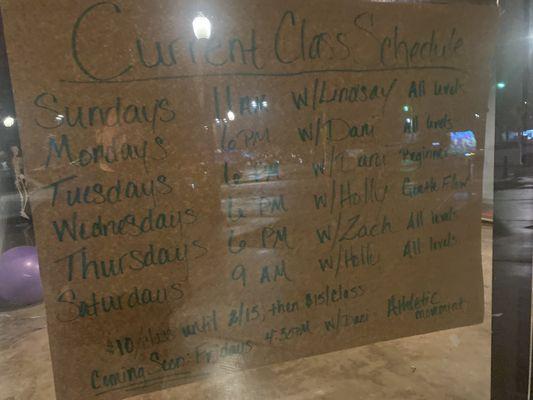 Current Class Schedule
Sundays 11 AM w/Lindsay All levels
Mondays 6 PM w/Dani All levels
Tuesdays 6 PM w/Dani Beginner
Wednesdays 6 PM w/Holly Gentle Flow
Thursdays 6 PM w/Zach All levels
Saturdays 9 AM w/Holly All levels
$10/class until 8/15, then $15/class
Coming Soon: Fridays 4:30PM w/Dani Athletic movement